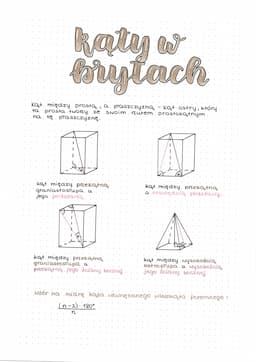 kąty w
bryłach
kąt między prostą, a płaszczyzną - kąt ostry, który
ta prosta tworzy ze swoim rzutem prostokątnym
na tę płaszczyznę.
kąt między przekątną
graniastosłupa a
jego podstawą
kąt między przekątną
a
kąt między przekątną
graniastosłupa a
przekątną jego ściany bocznej
kąt między wysokością
ostrosłupa a wysokością
jego ściany bocznej
wzór na miarę kąta wewnętrznego wielokąta foremnego:
(n-2)·180°
n